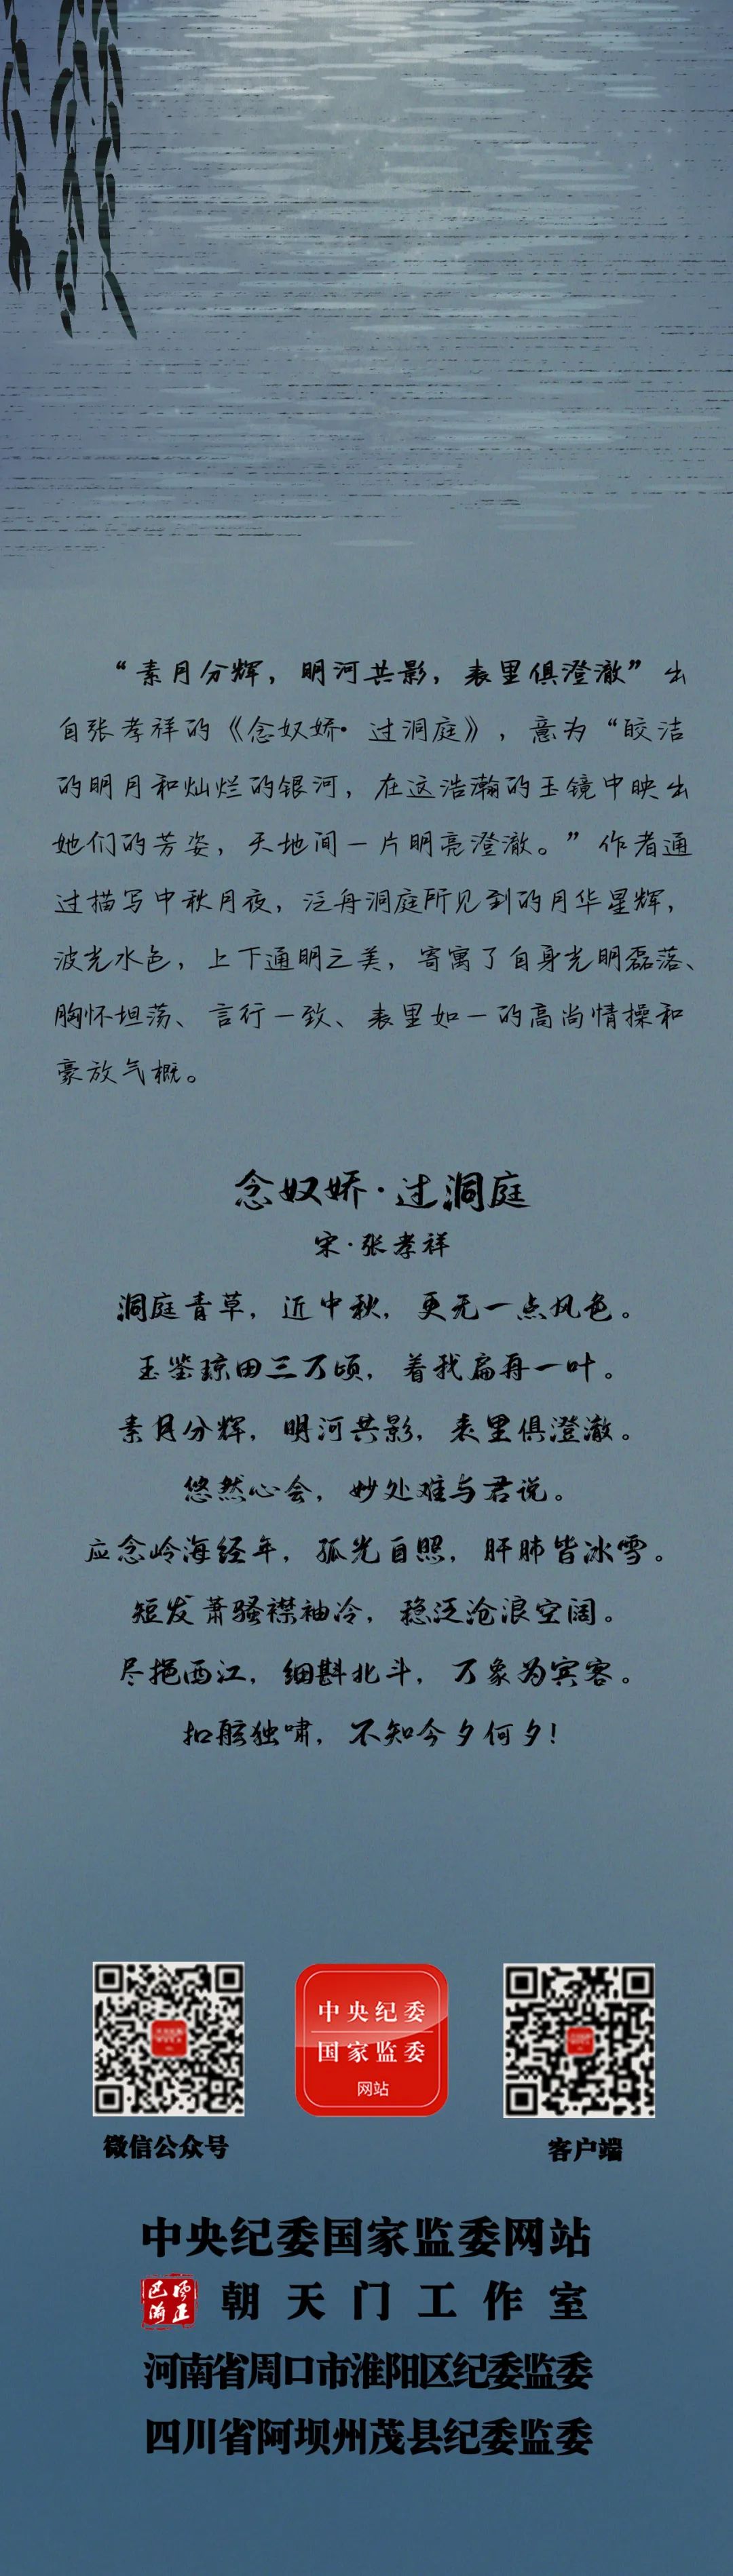 “素月分辉，明河共影，表里俱澄澈”出
自张孝祥的《念奴娇·过洞庭》，意为“皎洁
的明月和灿烂的银河，在这浩瀚的玉镜中映出
她们的芳姿，天地间一片明亮澄澈。”作者通
过描写中秋月夜，泛舟洞庭所见到的月华星辉，
波光水色，上下通明之美，寄寓了自身光明磊落、
胸怀坦荡、言行一致、表里如一的高尚情操和
豪放气概。
念奴娇·过洞庭
宋·张孝祥
洞庭青草，近中秋，更无一点风色。
玉鉴琼田三万顷，着我扁舟一叶。
素月分辉，明河共影，表里俱澄澈。
悠然心会，妙处难与君说。
应念岭海经年，孤光自照，肝肺皆冰雪。
短发萧骚襟袖冷，稳泛沧浪空阔。
尽挹西江，细斟北斗，万象为宾客。
扣舷独啸，不知今夕何夕！
中央纪委
国家监委
网站
微信公众号
客户端
中央纪委国家监委网站
巴渝风正
朝天门工作室
河南省周口市淮阳区纪委监委
四川省阿坝州茂县纪委监委